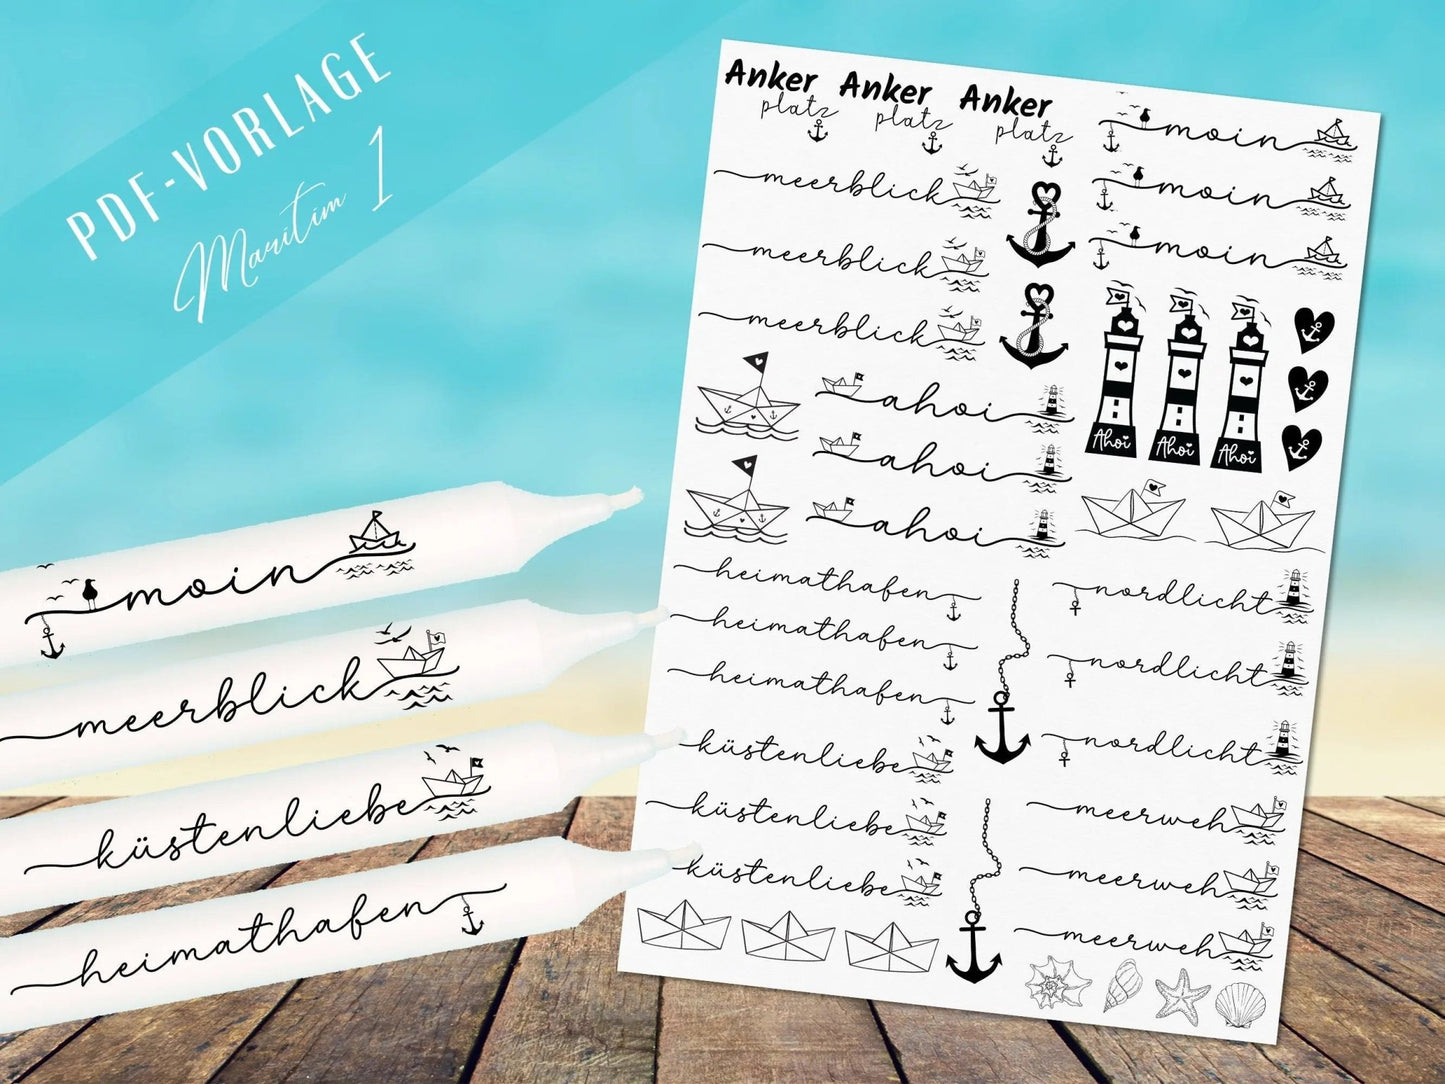 PDF-VORLAGE
Maritim 1
moin
meerblick
küstenliebe
heimathafen
Anker
platz
Anker
platz
Anker
platz
meerblick
meerblick
meerblick
ahoi
ahoi
ahoi
heimathafen
heimathafen
heimathafen
küstenliebe
küstenliebe
küstenliebe
moin
moin
moin
Ahoi
Ahoi
Ahoi
nordlicht
nordlicht
nordlicht
meerweh
meerweh
meerweh